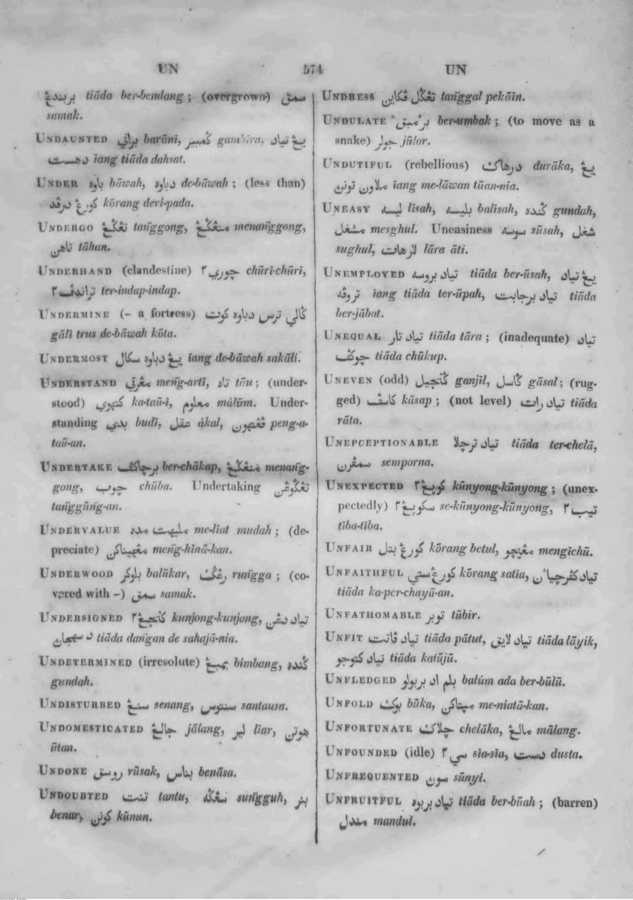 UN 574 UN
بربندڠ tiāda ber-bendang; (overgrown) سمق
samak.
UNDAUNTED براني barāni, گمبير gambīra, يڠ تياد
دهست iang tiāda dahsat.
UNDER باوه bāwah, دباوه de-bāwah; (less than)
كورڠ درڤد kōrang deri-pada.
UNDERGO تڠگڠ tañggong, منڠگڠ menañggong,
تاهن tāhan.
UNDERHAND (clandestine) چوري٢ chūri-chūri,
تراندڤ٢ ter-indap-indap.
UNDERMINE (- a fortress) گالي ترس دباوه كوت
gāli trus de-bāwah kōta.
UNDERMOST يڠ دباوه سكال iang de-bāwah sakāli.
UNDERSTAND مڠرتي meñg-arti, تاو tāu; (under-
stood) كتهوي ka-taū-i, معلوم mālūm. Under-
standing بدي budī, عقل ākal, ڤڠتهون peng-a-
taū-an.
UNDERTAKE برچاكڤ ber-chākap, منڠگڠ menañg-
gong, چوب chūba. Undertaking تڠگوڠن
tañggūng-an.
UNDERVALUE مليهت مده me-liat mudah; (de-
preciate) مڠهيناكن meñg-hīnā-kan.
UNDERWOOD بلوكر balūkar, رڠگ rañgga; (co-
vered with -) سمق samak.
UNDERSIGNED كنجڠ٢ kunjong-kunjong, تياد دڠن
د سهجان tiāda dañgan de sahajā-nia.
UNDETERMINED (irresolute) بمبڠ bimbang, گنده
gundah.
UNDISTURBED سنڠ senang, سنتوس santausa.
UNDOMESTICATED جالڠ jālang, لير liar, هوتن
ūtan.
UNDONE روسق rūsak, بناس benāsa.
UNDOUBTED تنت tantu, سڠگه suñgguh, بنر
benar, كونن kūnun.
UNDRESS تڠگل ڤكاين tañggal pekāin.
UNDULATE برمبق ber-umbak; (to move as a
snake) جولر jūlar.
UNDUTIFUL (rebellious) درهاك durāka, يڠ
ملاون توانن iang me-lāwan tūan-nia.
UNEASY ليسه lisah, بليسه balīsah, گنده gundah,
مشغل mesghul. Uneasiness سوسه sūsah, شغل
sughul, لارهات lāra āti.
UNEMPLOYED تياد بروسه tiāda ber-ūsah, يڠ تياد
تروڤه iang tiāda ter-ūpah, تياد برجابت tiāda
ber-jābat.
UNEQUAL تياد تار tiāda tāra; (inadequate) تياد
چوكڤ tiāda chūkup.
UNEVEN (odd) گنجيل ganjil, گاسل gāsal; (rug-
ged) كاسڤ kāsap; (not level) تياد رات tiāda
rāta.
UNEPCEPTIONABLE تياد ترچلا tiāda ter-chelā,
سمڤرن semporna.
UNEXPECTED كوڽڠ٢ kūnyong-kūnyong; (unex-
pectedly) سكوڽڠ٢ se-kūnyong-kūnyong, تيب٢
tība-tība.
UNFAIR كورڠ بتل kōrang betul, مڠيچو mengichū.
UNFAITHFUL كورڠ ستي kōrang satia, تياد كڤرچيائن
tiāda ka-per-chayū-an.
UNFATHOMABLE توبر tūbir.
UNFIT تياد ڤاتت tiāda pātut, تياد لايق tiāda lāyik,
تياد كتوجو tiāda katūjū.
UNFLEDGED بلم اد بربولو balum ada ber-būlū.
UNFOLD بوك būka, مڽتاكن me-niatā-kan.
UNFORTUNATE چلاك chelāka, مالڠ mālang.
UNFOUNDED (idle) سي٢ sia-sia, دست dusta.
UNFREQUENTED سوني sūnyi.
UNFRUITFUL تياد بربوه tiāda ber-būah; (barren)
مندل mandul.